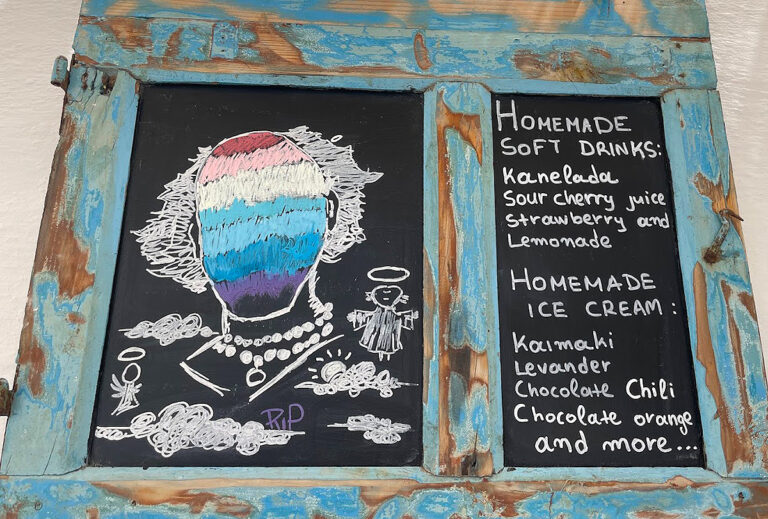 RIP
HOMEMADE
SOFT DRINKS:
Kanelada
Sour cherry juice
Strawberry and
Lemonade
HOMEMADE
ICE CREAM:
Kaimaki
Levander
Chocolate Chili
Chocolate orange
and more...